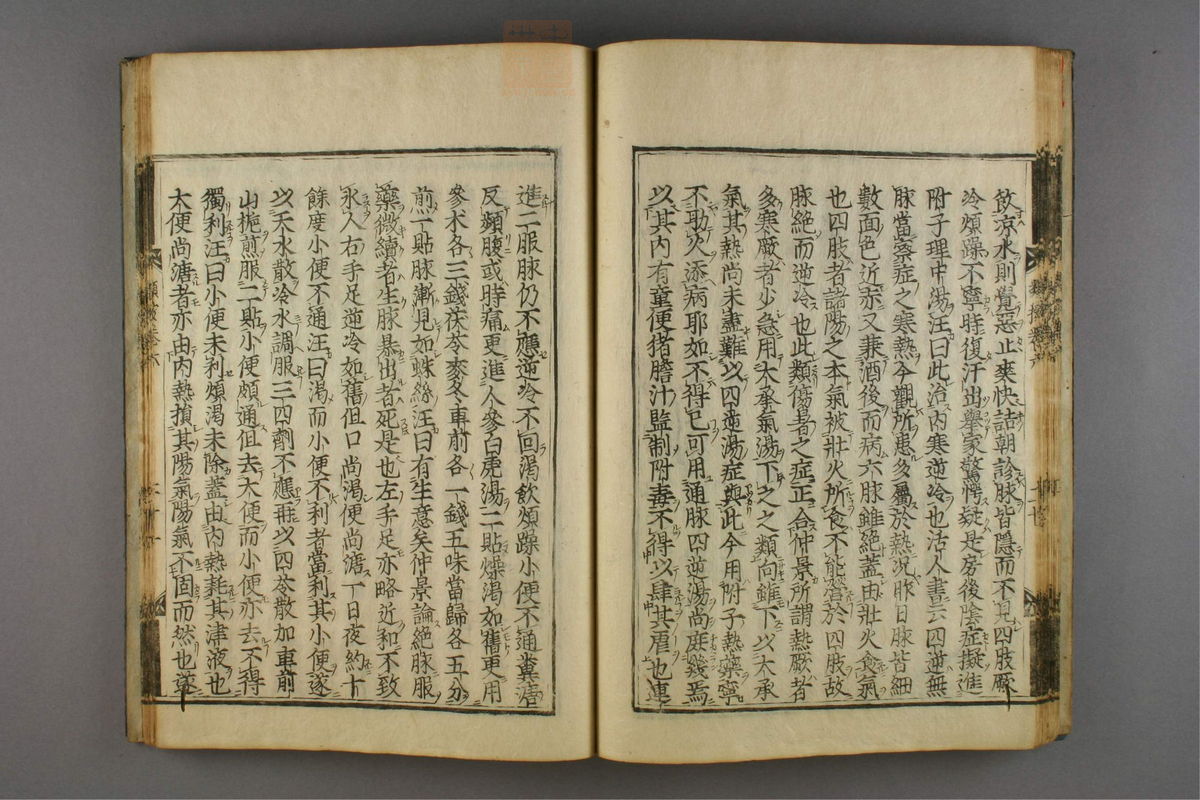 飲涼水則覺惡止爽快詰朝診脉皆隱而不見四肢厥
冷煩躁不寧時復汗出舉家驚愕疑是房後陰症擬進
附子理中湯汪曰此治內寒逆冷也活人書云四逆無
脉當察症之寒熱今觀所患多屬於熱况昨日脉皆細
數面色近赤又兼酒後而病六脉雖絕蓋由壯火食氣
也四肢者諸陽之本氣被壯火所食不能營於四肢故
脉絕而逆冷也此類傷暑之症正合仲景所謂熱厥者
多寒厥者少急用大承氣湯下之之類向雖下以大承
氣其熱尚未盡難以四逆湯症與此今用附子熱藥寧
不助火添病耶如不得已可用通脉四逆湯尚庶幾焉
以其內有童便猪膽汁監制附毒不得以肆其虐也連
進二服脉仍不應逆冷不回渴飲煩躁小便不通糞溏
反頻腹或時痛更進人參白虎湯二貼燥渴如舊更用
參朮各三錢茯苓麥冬車前各一錢五味當歸各五分
煎一貼脉漸見如蛛絲汪曰有生意矣仲景論絕脉服
藥微續者生脉暴出者死是也左手足亦略近和不致
氷人右手足逆冷如舊但口尚渴便尚溏一日夜約十
餘度小便不通汪曰渴而小便不利者當利其小便遂
以天水散冷水調服三四劑不應再以四苓散加車前
山梔煎服二貼小便頗通但去大便而小便亦去不得
獨利汪曰小便未利煩渴未除蓋由內熱耗其津液也
大便尚溏者亦由內熱損其陽氣陽氣不固而然也遂